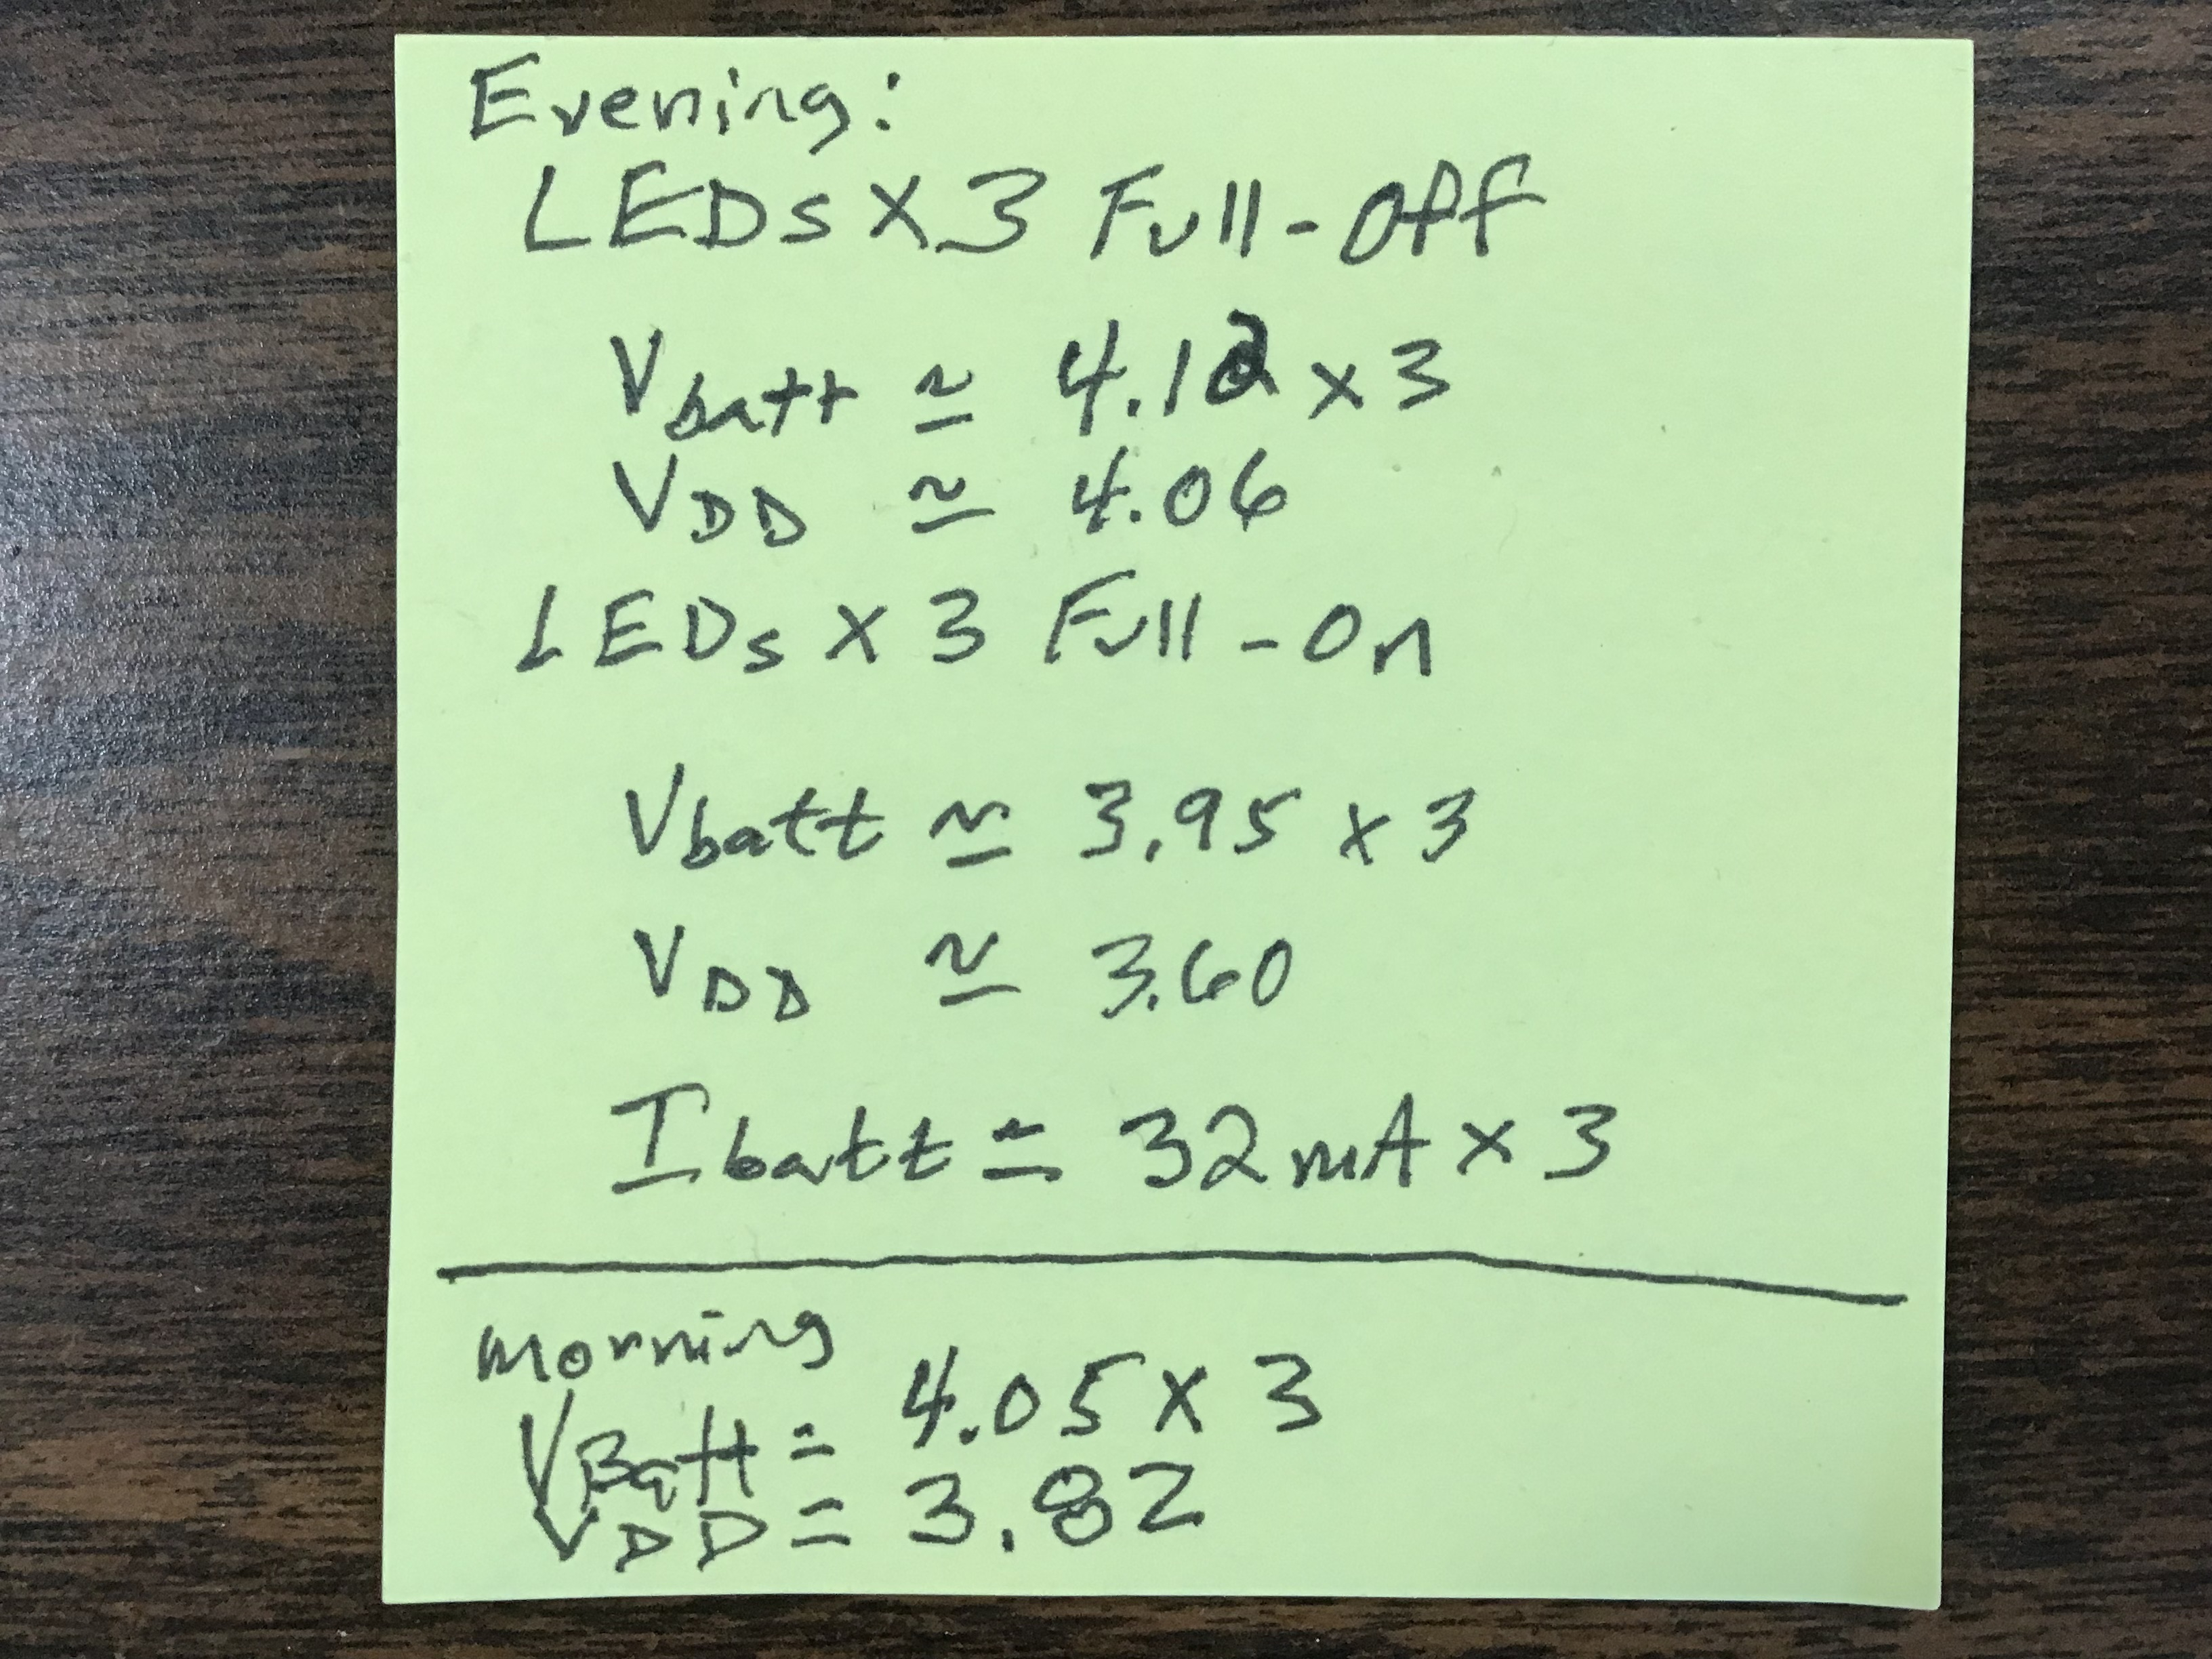 Evening:
LEDs X 3 Full-Off
Vbatt ≃ 4.12 x 3
VDD ≃ 4.06
LEDs X 3 Full-On
Vbatt ≃ 3.95 x 3
VDD ≃ 3.60
Ibatt ≃ 32mA x 3
morning
VBatt = 4.05 X 3
VDD = 3.82